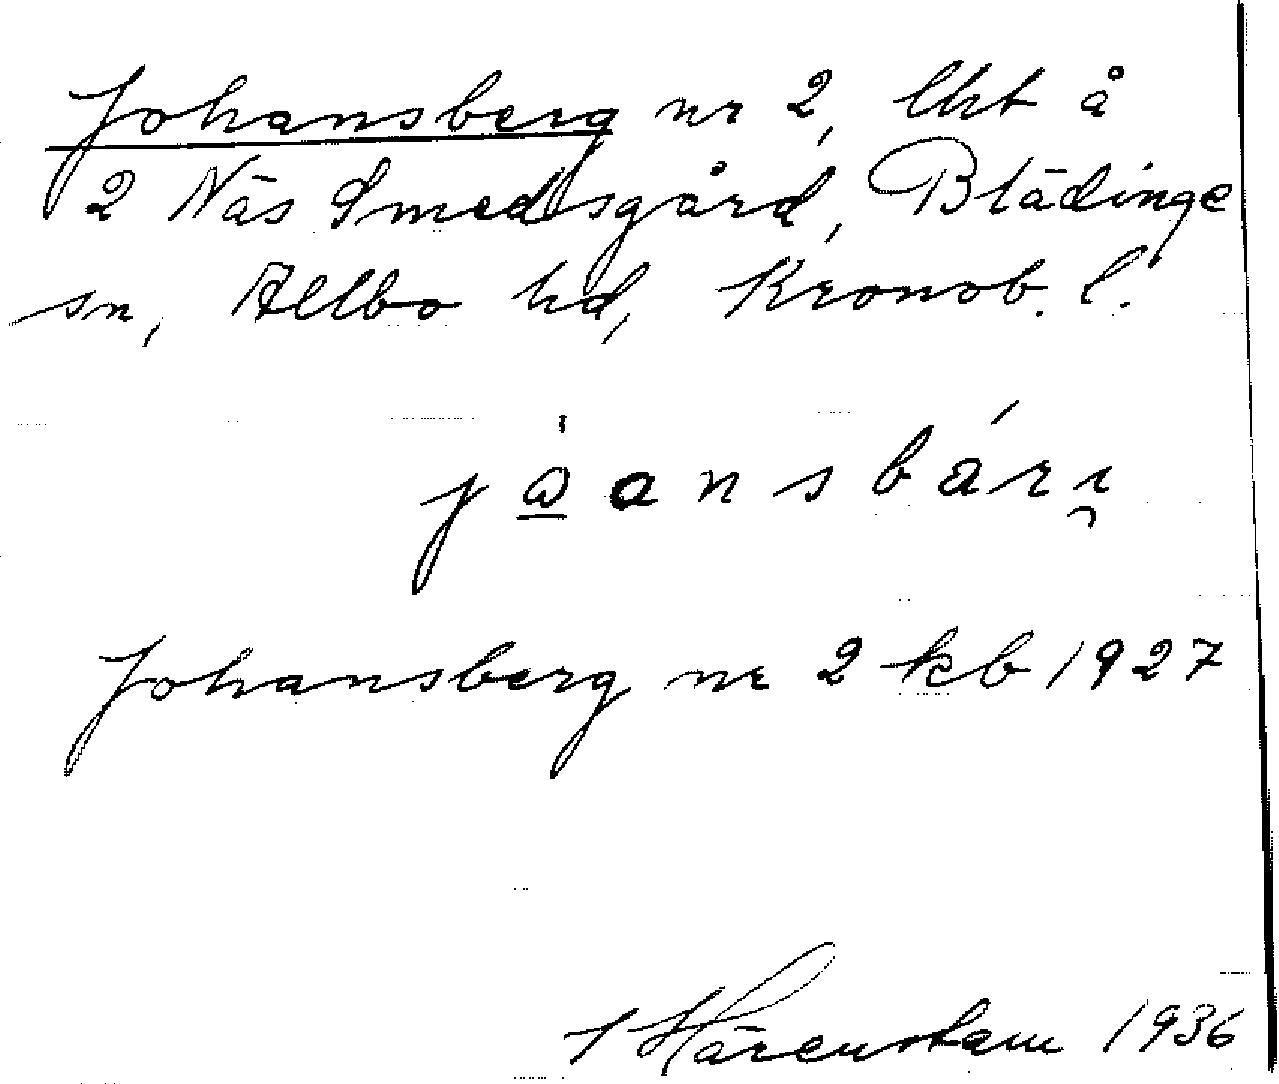 Johansberg nr 2, lht å
2 Näs Smedsgård, Blädinge
sn, Allbo hd, Kronob. l.
Johansberg nr 2 kb 1927
Härenstam 1936